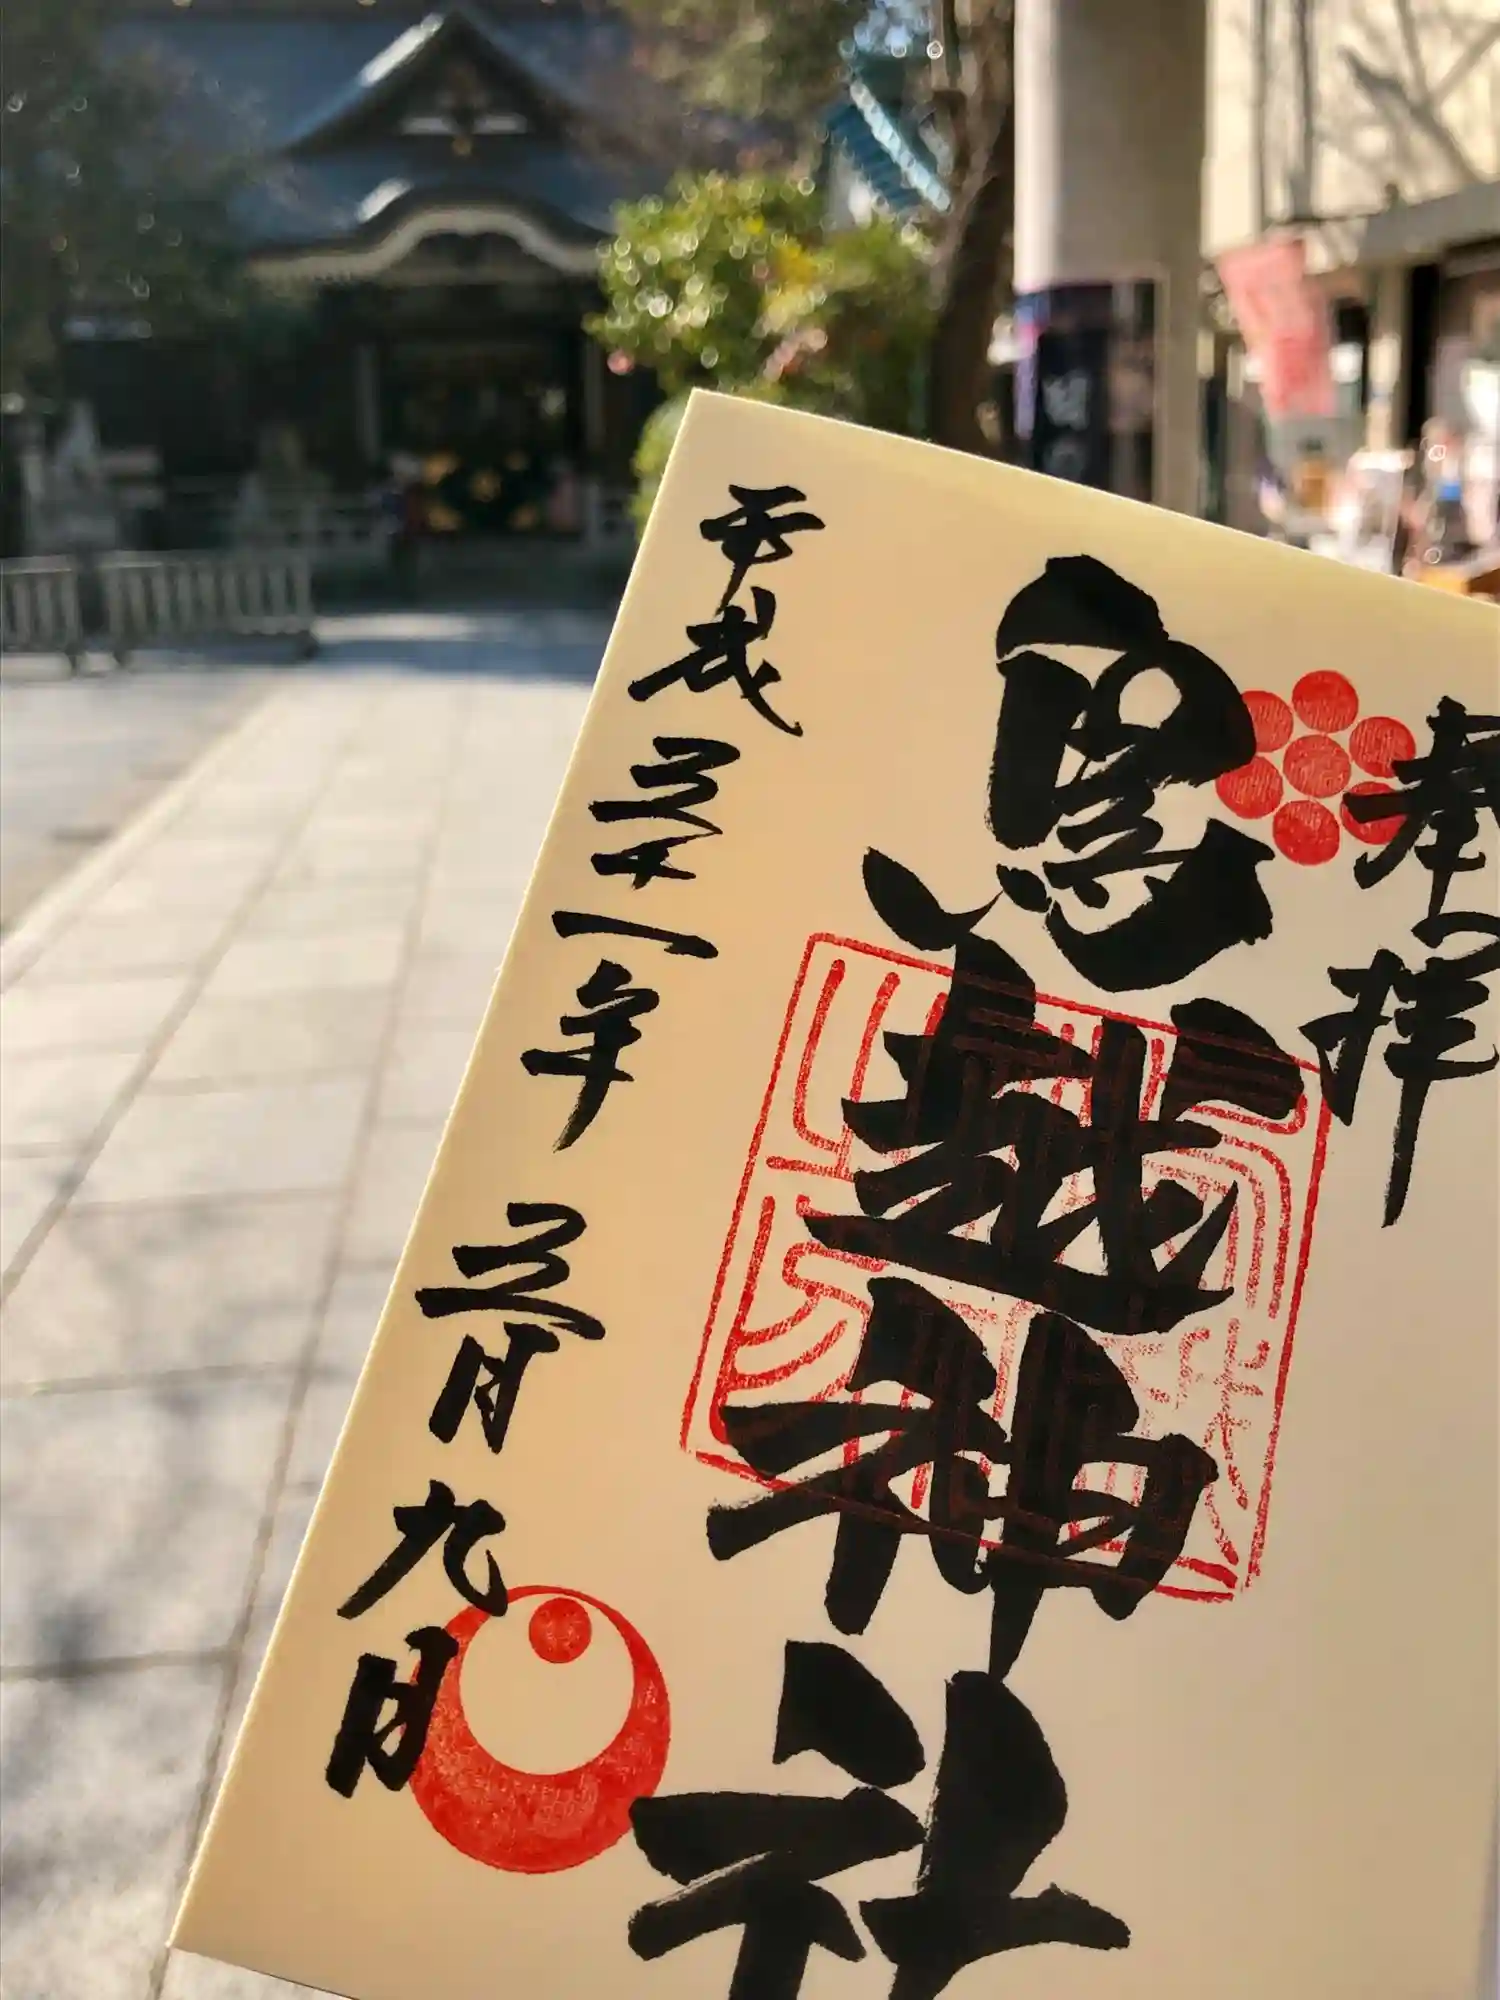 奉拝
鳥越神社
平成三十一年 三月九日